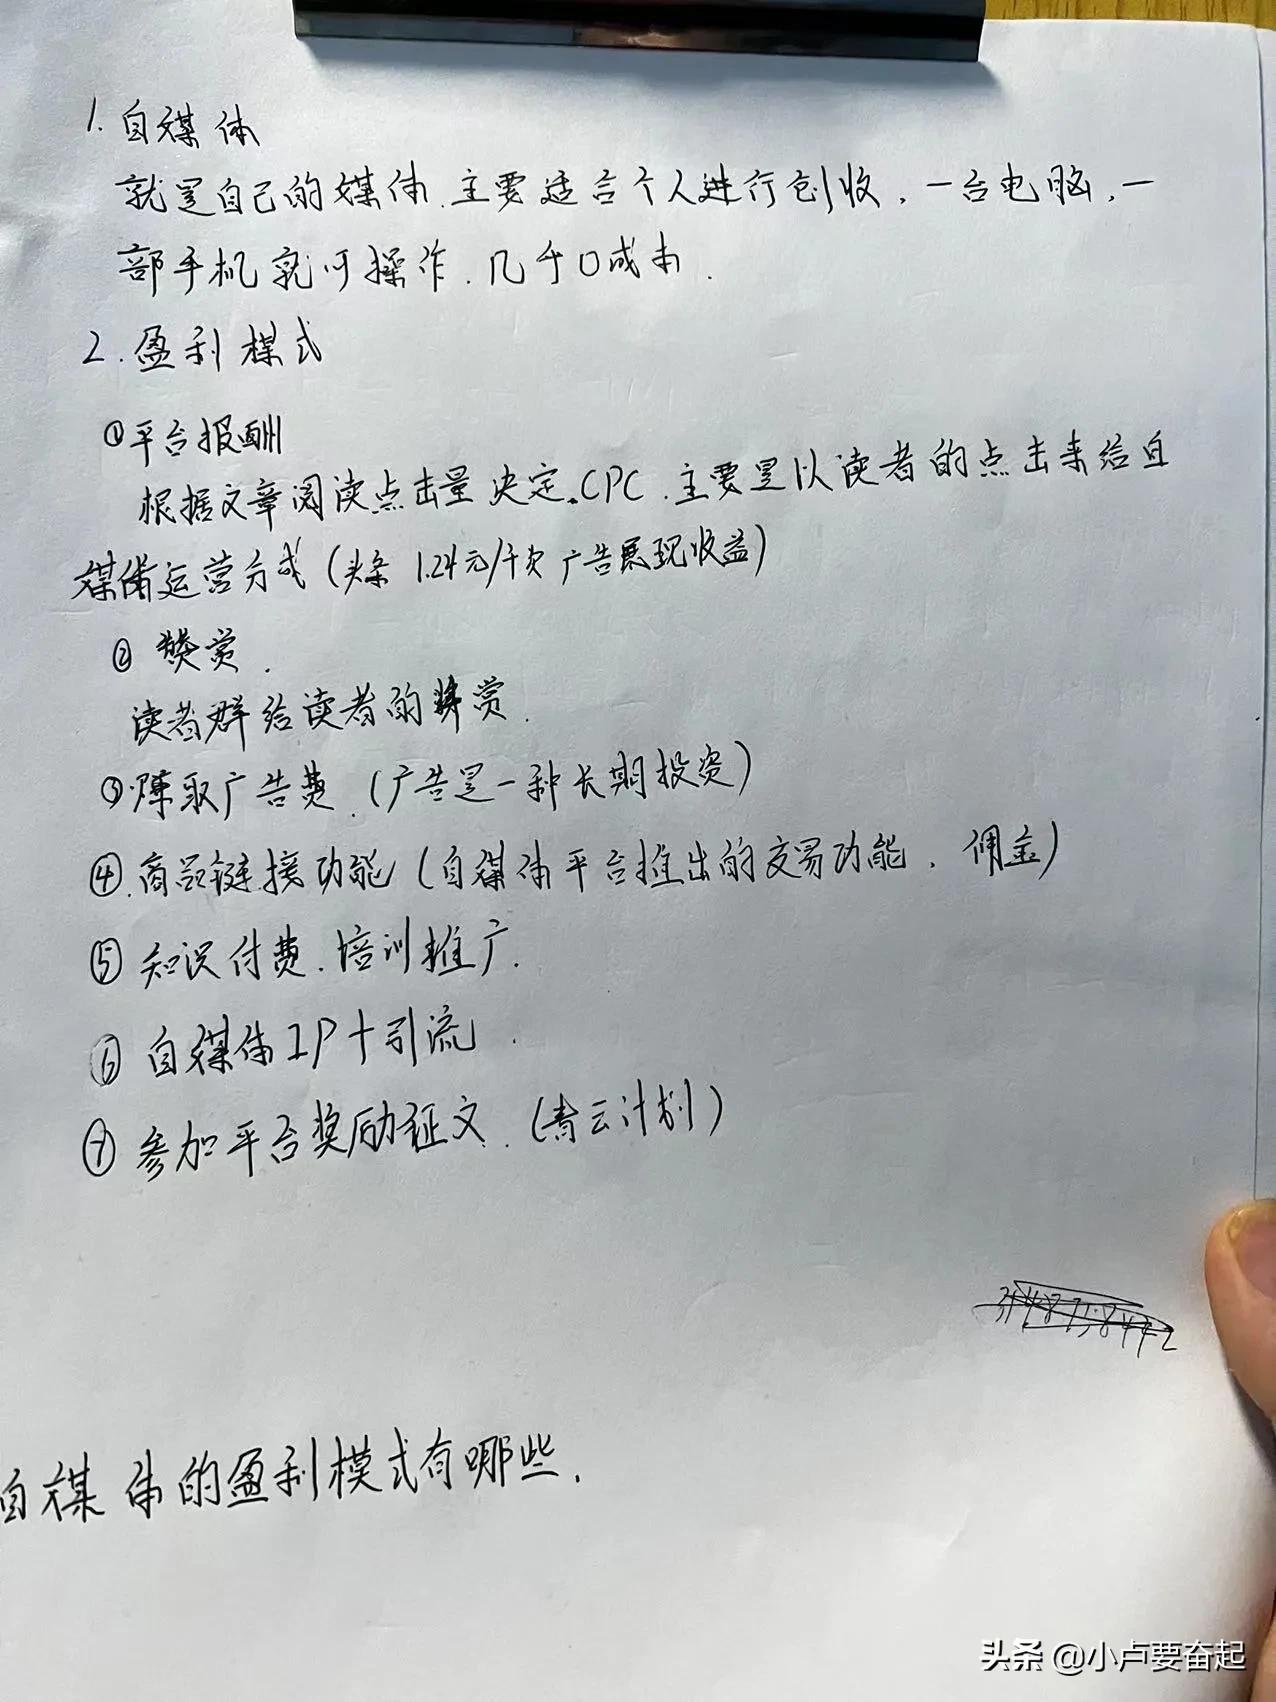 1. 自媒体
就是自己的媒体.主要适合个人进行创收,一台电脑,一
部手机就可操作.几乎0成本.
2.盈利模式
①平台报酬
根据文章阅读点击量决定.CPC.主要是以读者的点击来给自
媒体运营方式(头条 1.24元/千次广告展现收益)
② 赞赏.
读者群给读者的奖赏.
③赚取广告费.(广告是一种长期投资)
④.商品链接功能(自媒体平台推出的交易功能.佣金)
⑤ 知识付费.培训推广.
⑥ 自媒体IP+引流.
⑦ 参加平台奖励征文.(青云计划)
自媒体的盈利模式有哪些.
头条 @小卢要奋起